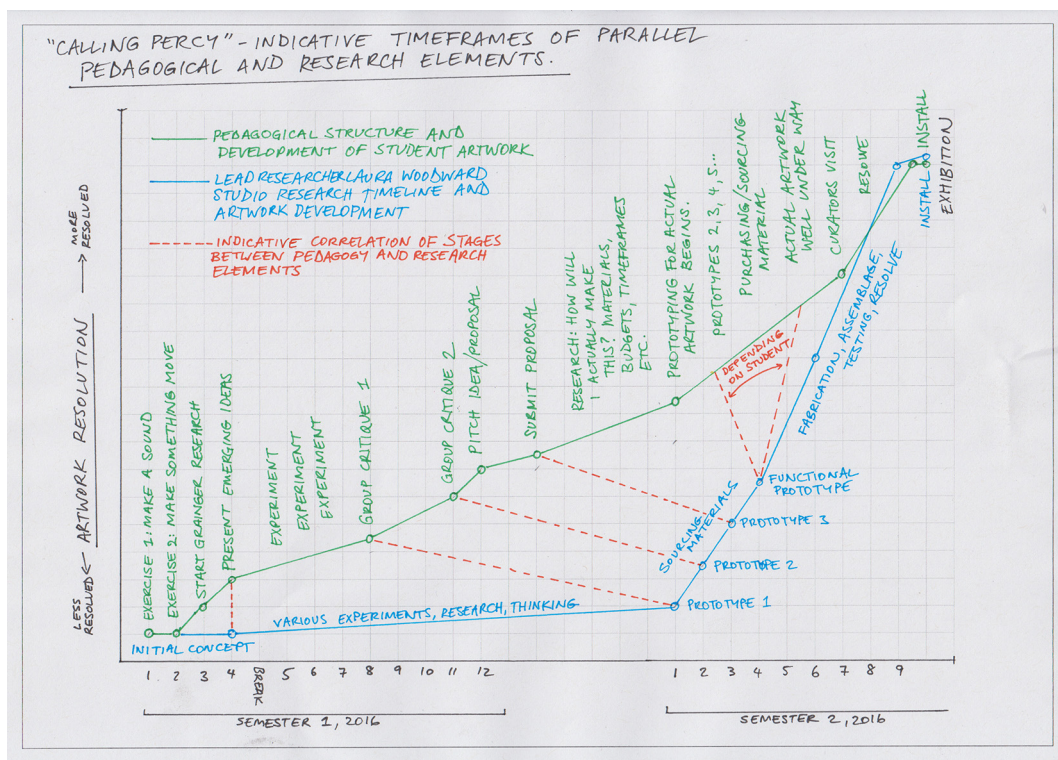 "CALLING PERCY" - INDICATIVE TIMEFRAMES OF PARALLEL
PEDAGOGICAL AND RESEARCH ELEMENTS.
PEDAGOGICAL STRUCTURE AND
DEVELOPMENT OF STUDENT ARTWORK
LEAD RESEARCHER LAURA WOODWARD
STUDIO RESEARCH TIMELINE AND
ARTWORK DEVELOPMENT
INDICATIVE CORRELATION OF STAGES
BETWEEN PEDAGOGY AND RESEARCH
ELEMENTS
LESS
RESOLVED
ARTWORK RESOLUTION
MORE
RESOLVED
EXERCISE 1: MAKE A SOUND
EXERCISE 2: MAKE SOMETHING MOVE
START GRAINGER RESEARCH
PRESENT EMERGING IDEAS
EXPERIMENT
EXPERIMENT
EXPERIMENT
GROUP CRITIQUE 1
GROUP CRITIQUE 2
PITCH IDEA/PROPOSAL
SUBMIT PROPOSAL
RESEARCH: HOW WILL
I ACTUALLY MAKE
THIS? MATERIALS,
BUDGETS, TIMEFRAMES
ETC.
PROTOTYPING FOR ACTUAL
ARTWORK BEGINS.
PROTOTYPES 2, 3, 4, 5...
PURCHASING/SOURCING
MATERIAL
ACTUAL ARTWORK
WELL UNDER WAY
CURATORS VISIT
RESOLVE
INSTALL
INSTALL
EXHIBITION
DEPENDING
ON STUDENT
FABRICATION, ASSEMBLAGE,
TESTING, RESOLVE
FUNCTIONAL
PROTOTYPE
SOURCING
MATERIALS
PROTOTYPE 3
PROTOTYPE 2
PROTOTYPE 1
VARIOUS EXPERIMENTS, RESEARCH, THINKING
INITIAL CONCEPT
1 2 3 4 BREAK 5 6 7 8 9 10 11 12 1 2 3 4 5 6 7 8 9
SEMESTER 1, 2016
SEMESTER 2, 2016